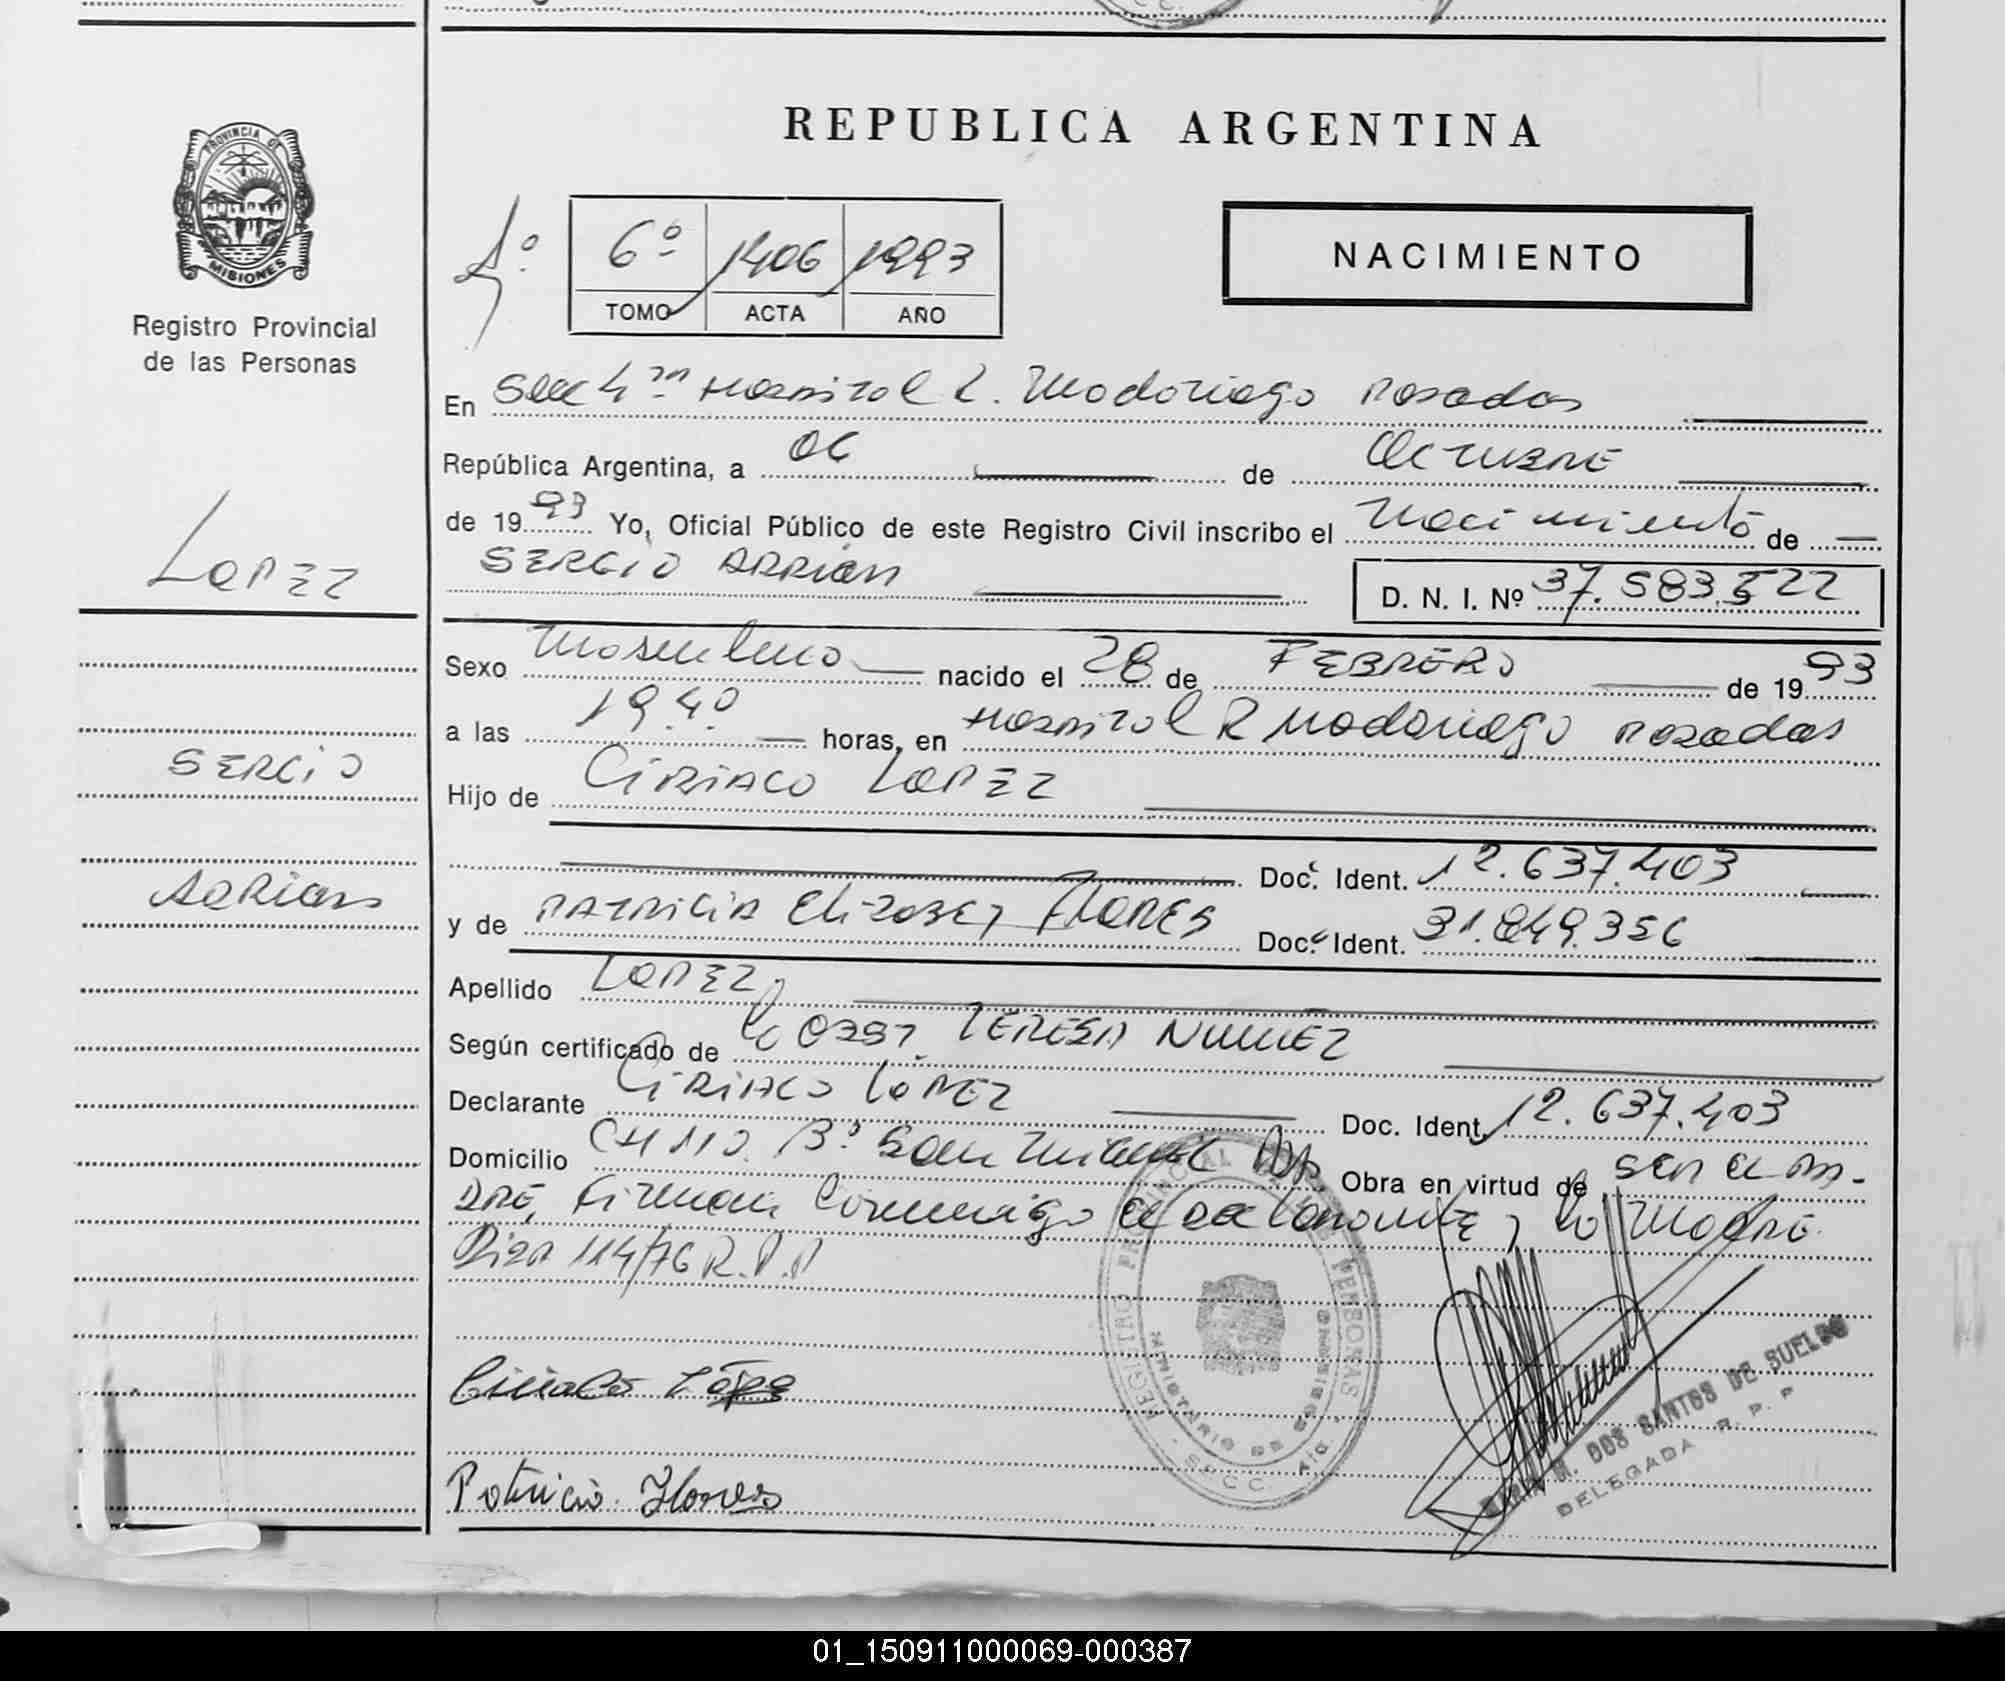 REPUBLICA ARGENTINA
PROVINCIA DE
MISIONES
Registro Provincial
de las Personas
6º 1406 1993
TOMO ACTA AÑO
NACIMIENTO
LOPEZ
SERGIO
ADRIAN
En Secc 4ta Hospital R. Madariaga Posadas
República Argentina, a 06 de OCTUBRE
de 1993 Yo, Oficial Público de este Registro Civil inscribo el Nacimiento de
SERGIO ADRIAN D. N. I. Nº 37.583.522
Sexo Masculino nacido el 28 de FEBRERO de 1993
a las 19.40 horas, en Hospital R Madariaga Posadas
Hijo de CIRIACO LOPEZ
Doc. Ident. 12.637.403
y de PATRICIA Elizabet FLORES Doc. Ident. 31.849.356
Apellido LOPEZ
Según certificado de la Obst. TERESA NUÑEZ
Declarante CIRIACO LOPEZ Doc. Ident. 12.637.403
Domicilio CH 110. Bº San Miguel Obra en virtud de ser el PA-
DRE, Firman Conmigo el declarante y la MADRE.
Disp 114/76 R.P.P
Ciriaco López
Patricia Flores
REGISTRO PROVINCIAL DE LAS PERSONAS
MINISTERIO DE GOBIERNO
M. DOS SANTOS DE SUELDO
DELEGADA R. P. P
01_150911000069-000387